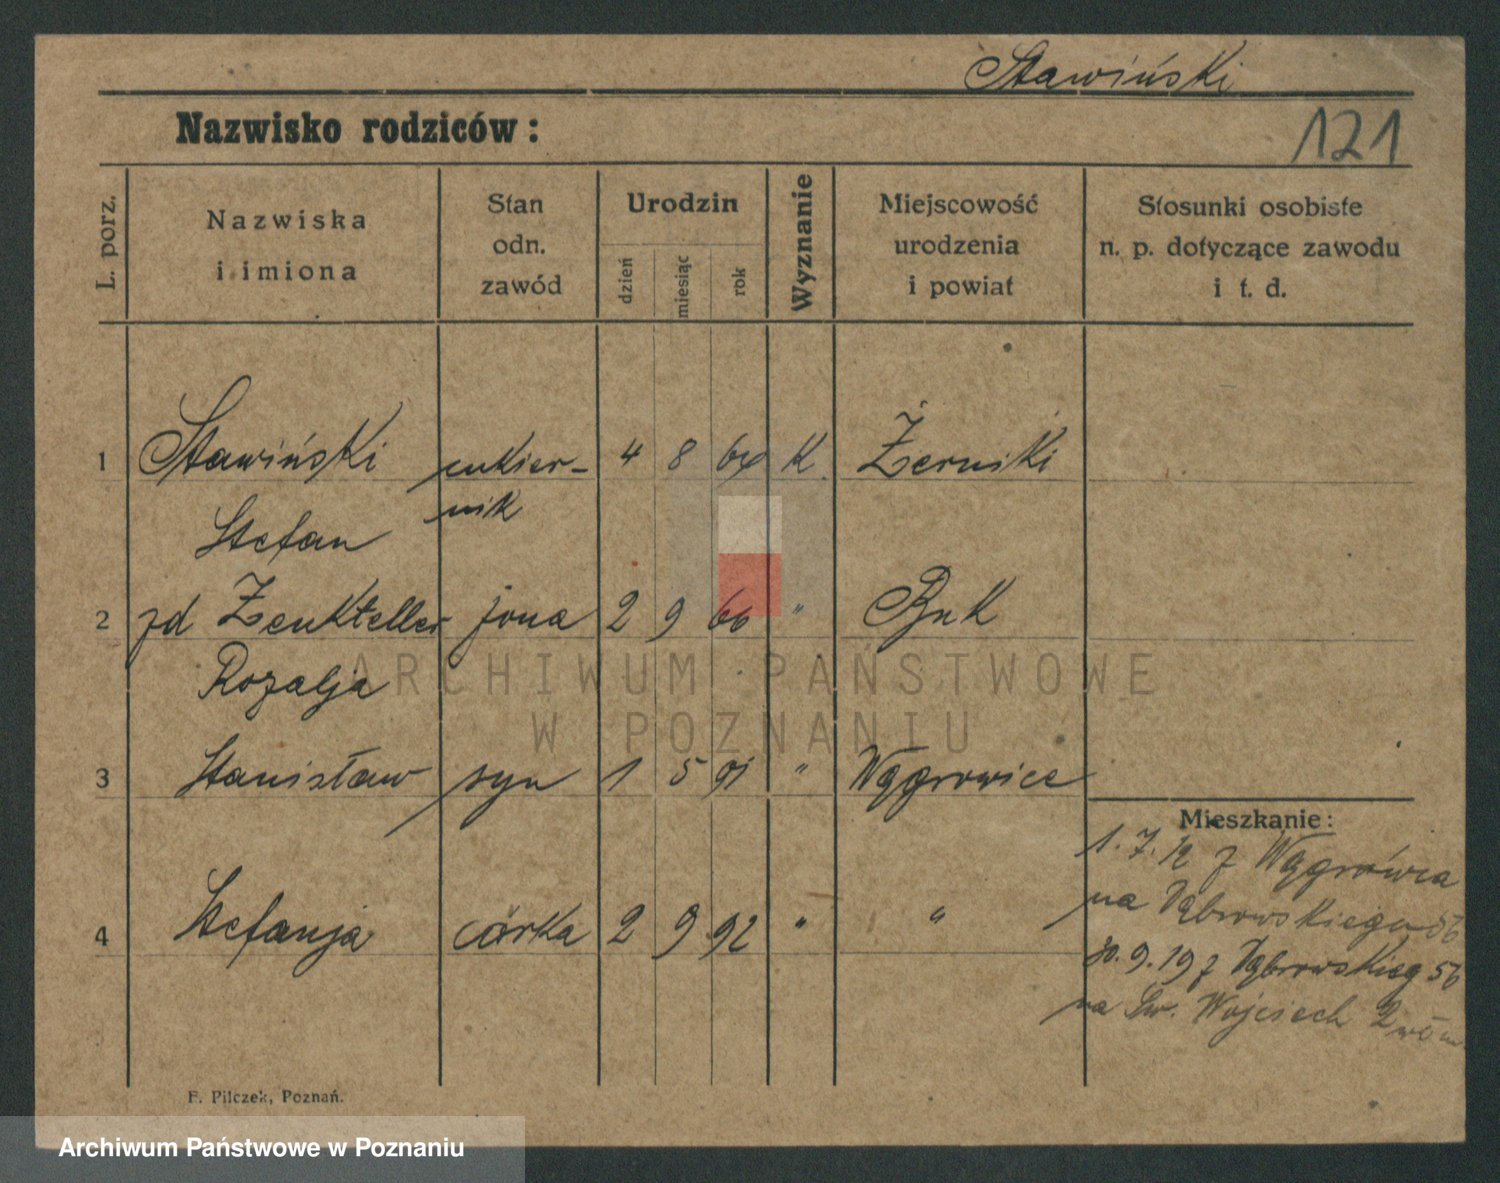 Stawiński
Nazwisko rodziców:
121
L. porz.
Nazwiska
i imiona
Stan
odn.
zawód
Urodzin
dzień
miesiąc
rok
Wyznanie
Miejscowość
urodzenia
i powiat
Stosunki osobiste
n. p. dotyczące zawodu
i t. d.
1 Stawiński cukier- 4 8 64 K. Żerniki
nik
Stefan
2 zd Zenkteller żona 2 9 60 " Buk
Rozalja
3 Stanisław syn 1 5 91 " Wągrowiec
Mieszkanie:
1. 7. 12 z Wągrówca
na Dąbrowskiego 56
4 Stefanja córka 2 9 92 " "
30. 9. 19 z Dąbrowskieg 56
na Św. Wojciech 2
F. Pilczek, Poznań.
ARCHIWUM PAŃSTWOWE
W POZNANIU
Archiwum Państwowe w Poznaniu